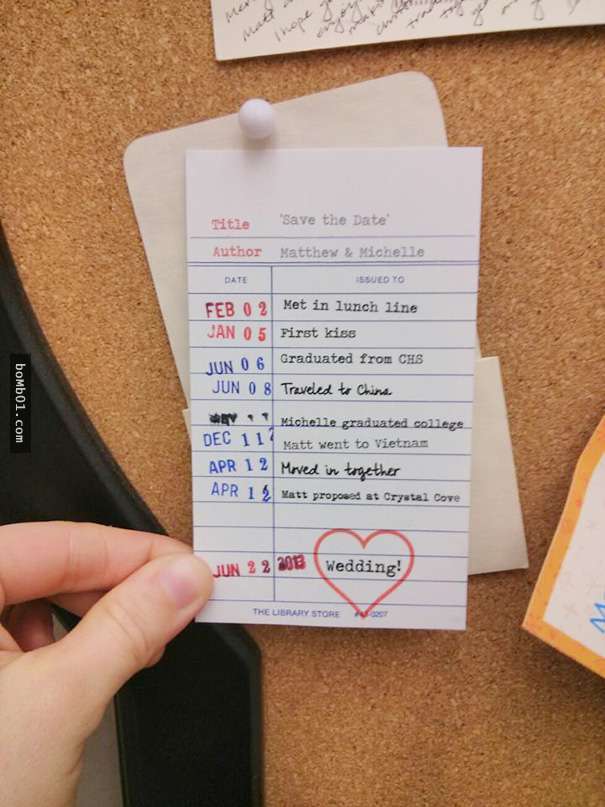 Matt
I hope
enjoy
Title 'Save the Date'
Author Matthew & Michelle
DATE ISSUED TO
FEB 02 Met in lunch line
JAN 05 First kiss
JUN 06 Graduated from CHS
JUN 08 Traveled to China
Michelle graduated college
DEC 11 Matt went to Vietnam
APR 12 Moved in together
APR 1 Matt proposed at Crystal Cove
JUN 22 2013 Wedding!
THE LIBRARY STORE
bomb01.com